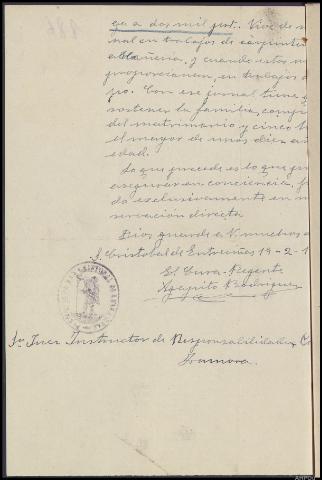 ga a dos mil pst. Vive de s
nal en trabajos de carpinte
albañileria, y cuando estos n
proporcionan, en trabajos d
po. Con ese jornal tiene q
sostener la familia, comp
del matrimonio y cinco h
el mayor de unos diez a
edad.
Lo que precede es lo que pu
asegurar en conciencia, f
da exclusivamente en m
servacion directa.
Dios guarde a V. muchos a
S. Cristobal de Entreviñas 19-2-1
El Cura-Regente
Agapito Rodriguez
Sr. Juez Instructor de Responsabilidades
Zamora.